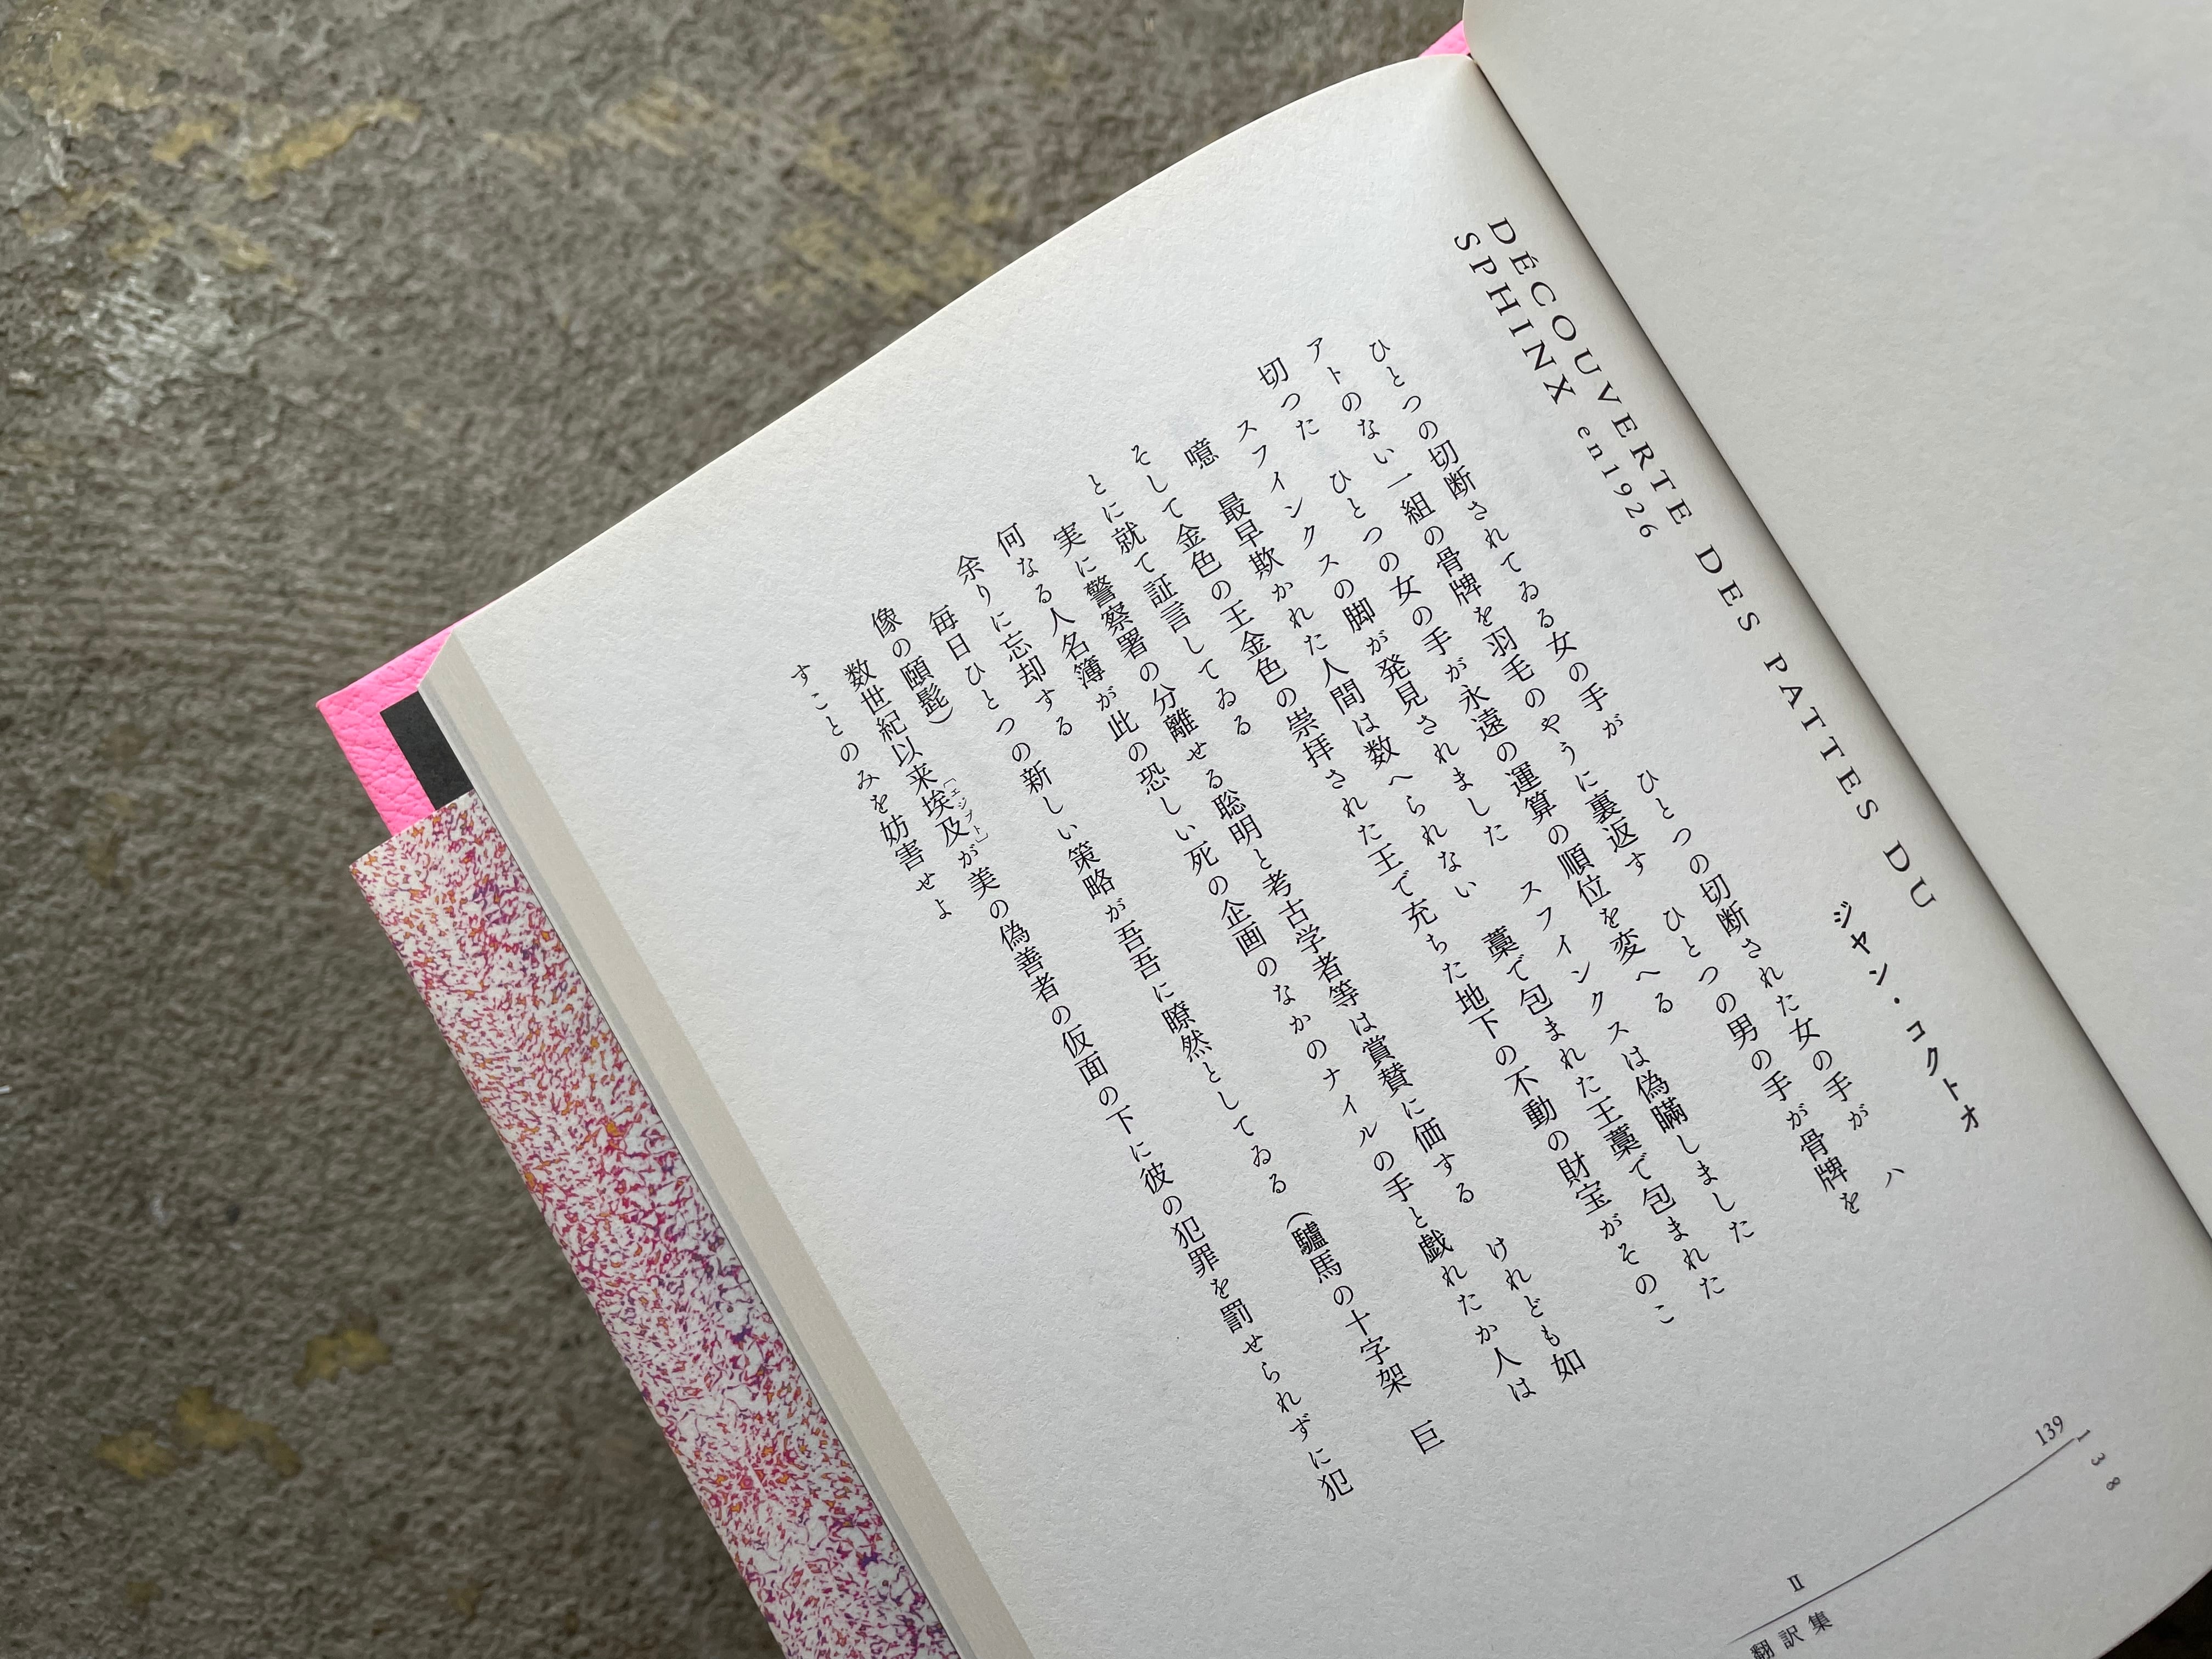 DÉCOUVERTE DES PATTES DU
SPHINX en1926
ジャン・コクトオ
ひとつの切断されてゐる女の手が　ひとつの切断された女の手が　ハ
アトのない一組の骨牌を羽毛のやうに裏返す　ひとつの男の手が骨牌を
切つた　ひとつの女の手が永遠の運算の順位を変へる
スフインクスの脚が発見されました　スフインクスは偽瞞しました
噫　最早欺かれた人間は数へられない　藁で包まれた王藁で包まれた
そして金色の王金色の崇拝された王で充ちた地下の不動の財宝がそのこ
とに就て証言してゐる
実に警察署の分離せる聡明と考古学者等は賞賛に価する　けれども如
何なる人名簿が此の恐しい死の企画のなかのナイルの手と戯れたか人は
余りに忘却する
毎日ひとつの新しい策略が吾吾に瞭然としてゐる（驢馬の十字架　巨
像の頤髭）
数世紀以来埃及［エジプト］が美の偽善者の仮面の下に彼の犯罪を罰せられずに犯
すことのみを妨害せよ
139
138
Ⅱ
翻訳集